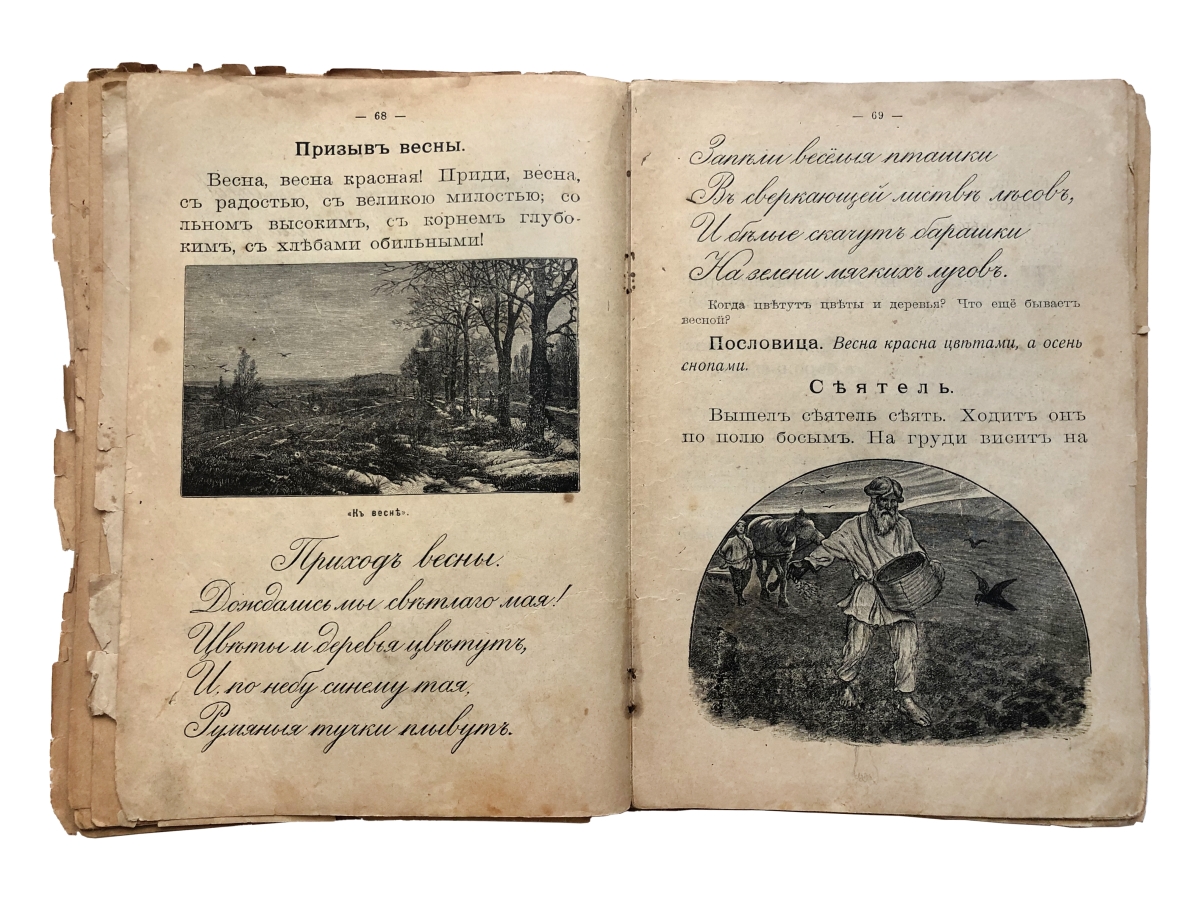 — 68 —
Призывъ весны.
Весна, весна красная! Приди, весна,
съ радостью, съ великою милостью; со
льномъ высокимъ, съ корнемъ глубо-
кимъ, съ хлѣбами обильными!
«Къ веснѣ».
Приходъ весны.
Дождались мы свѣтлаго мая!
Цвѣты и деревья цвѣтутъ,
И, по небу синему тая,
Румяныя тучки плывутъ.
— 69 —
Запѣли весёлыя пташки
Въ сверкающей листвѣ лѣсовъ,
И бѣлые скачутъ барашки
На зелени мягкихъ луговъ.
Когда цвѣтутъ цвѣты и деревья? Что ещё бываетъ
весной?
Пословица. Весна красна цвѣтами, а осень
снопами.
Сѣятель.
Вышелъ сѣятель сѣять. Ходитъ онъ
по полю босымъ. На груди виситъ на